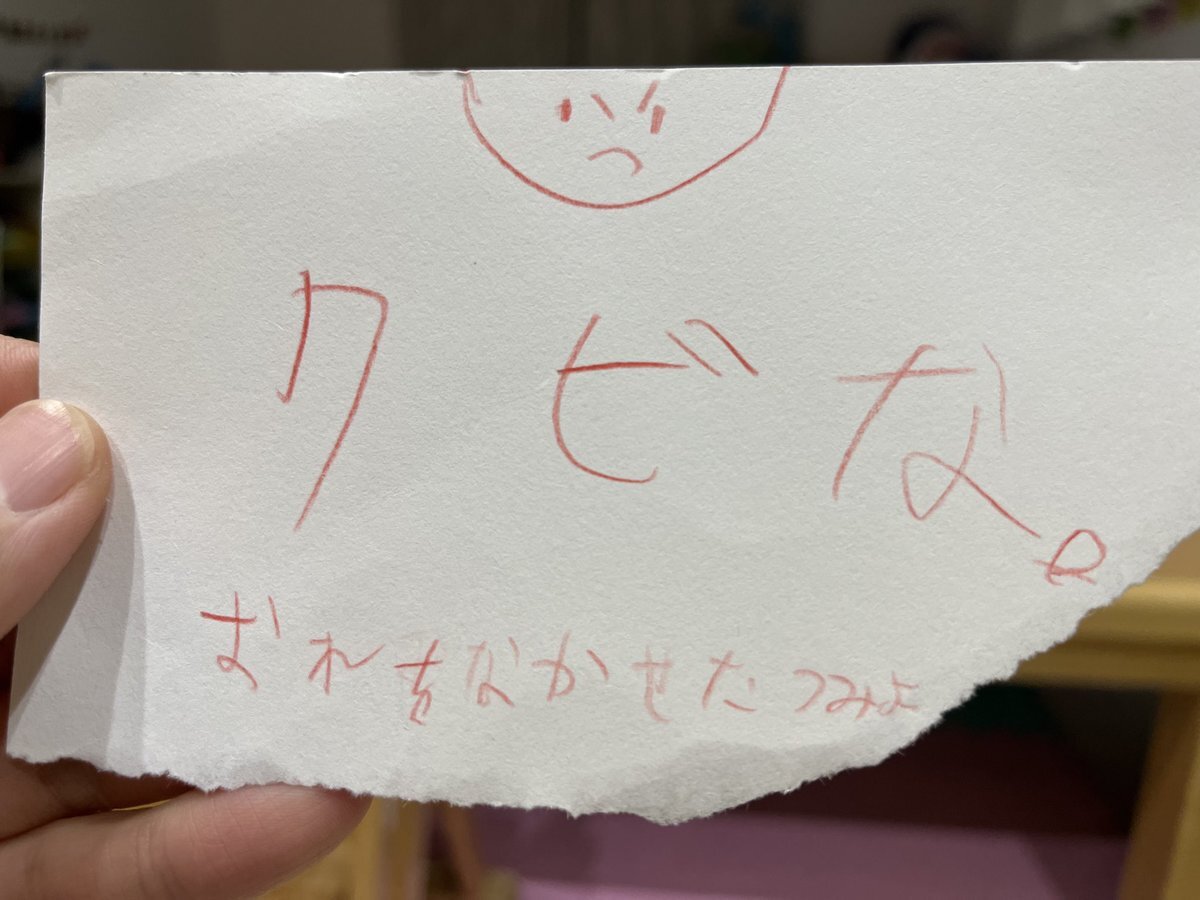 クビな。
おれをなかせたつみよ